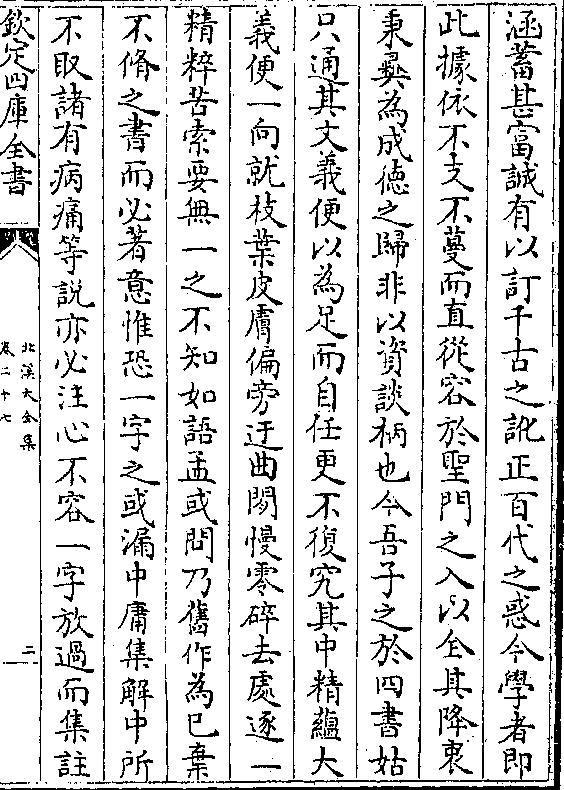 涵蓄甚富誠有以訂千古之訛正百代之惑今學者即
此據依不支不蔓而直從容於聖門之入以全其降衷
秉彛為成徳之歸非以資談柄也今吾子之於四書姑
只通其文義便以為足而自任更不復究其中精藴大
義便一向就枝葉皮膚偏旁迂曲閒慢零碎去處逐一
精粹苦索要無一之不知如語孟或問乃舊作為已棄
不脩之書而必著意惟恐一字之或漏中庸集解中所
不取諸有病痛等説亦必注心不容一字放過而集註
欽定四庫全書
北溪大全集
卷二十七
二